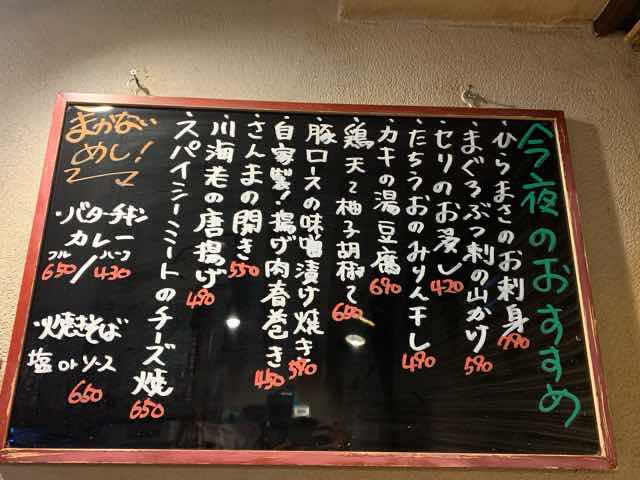 今夜のおすすめ
・ひらまさのお刺身 790
・まぐろぶつ刺の山かけ 590
・セリのお浸し 420
・たちうおのみりん干し 490
・カキの湯豆腐 690
・鶏天と柚子胡椒で 650
・豚ロースの味噌漬け焼き 590
・自家製！揚げ肉春巻き 450
・さんまの開き 550
・川海老の唐揚げ 490
・スパイシーミートのチーズ焼 650
まかない
めし！
・バターチキン
カレー
フル ハーフ
650/430
・焼きそば
塩 or ソース
650